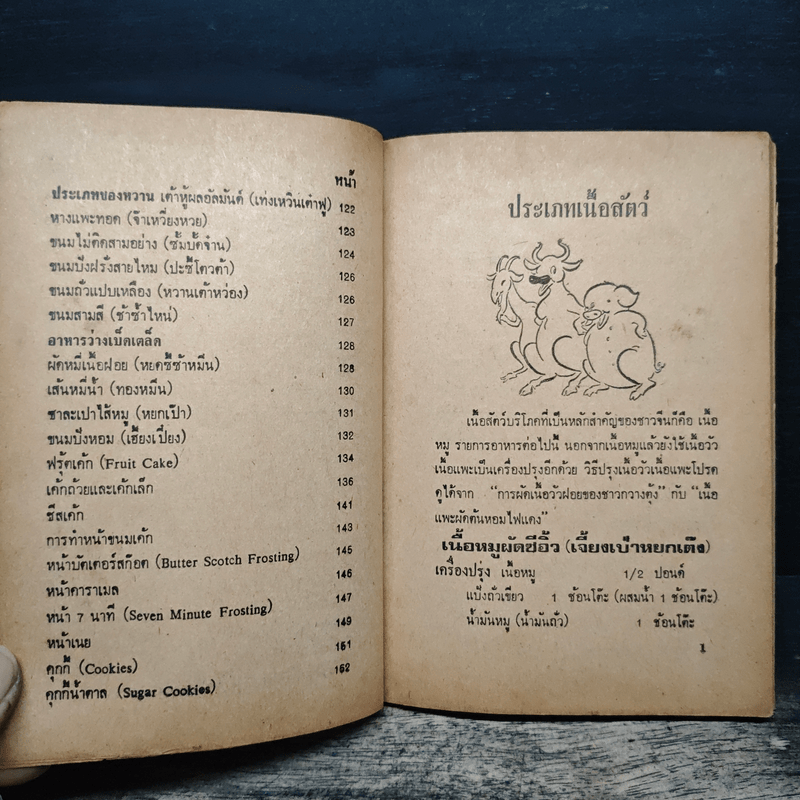 หน้า
ประเภทของหวาน เต้าหู้ผลอัลมันด์ (เท่งเหวินเต๋าฟู) 122
หางแพะทอด (จ๊าเหวี่ยงหวย) 123
ขนมไม่ติดสามอย่าง (ซั้มบั้คจ๋าน) 124
ขนมปังฝรั่งสายไหม (ปะซี๊โตวต้า) 126
ขนมถั่วแปบเหลือง (หวานเต๋าหว่อง) 126
ขนมสามสี (ซ้าซ้ำไหน่) 127
อาหารว่างเบ็ดเตล็ด 128
ผัดหมี่เนื้อฝอย (หยดซี๊ซ้าหมีน) 128
เส้นหมี่น้ำ (ทองหมีน) 130
ซาละเปาไส้หมู (หยกเป๊า) 131
ขนมปังหอม (เฮี้ยงเปี่ยง) 132
ฟรุ้ตเค้ก (Fruit Cake) 134
เค้กถ้วยและเค้กเล็ก 136
ชีสเค้ก 141
การทำหน้าขนมเค้ก 143
หน้าบัตเตอร์สก๊อต (Butter Scotch Frosting) 145
หน้าคาราเมล 146
หน้า 7 นาที (Seven Minute Frosting) 147
หน้าเนย 149
คุกกี้ (Cookies) 151
คุกกี้น้ำตาล (Sugar Cookies) 152
ประเภทเนื้อสัตว์
เนื้อสัตว์บริโภคที่เป็นหลักสำคัญของชาวจีนก็คือ เนื้อ
หมู รายการอาหารต่อไปนี้ นอกจากเนื้อหมูแล้วยังใช้เนื้อวัว
เนื้อแพะเป็นเครื่องปรุงอีกด้วย วิธีปรุงเนื้อวัวเนื้อแพะโปรด
ดูได้จาก "การผัดเนื้อวัวฝอยของชาวกวางตุ้ง" กับ "เนื้อ
แพะผัดต้นหอมไฟแดง"
เนื้อหมูผัดซีอิ้ว (เจี้ยงเป๋าหยกเต๊ง)
เครื่องปรุง เนื้อหมู 1/2 ปอนด์
แป้งถั่วเขียว 1 ช้อนโต๊ะ (ผสมน้ำ 1 ช้อนโต๊ะ)
น้ำมันหมู (น้ำมันถั่ว) 1 ช้อนโต๊ะ
1